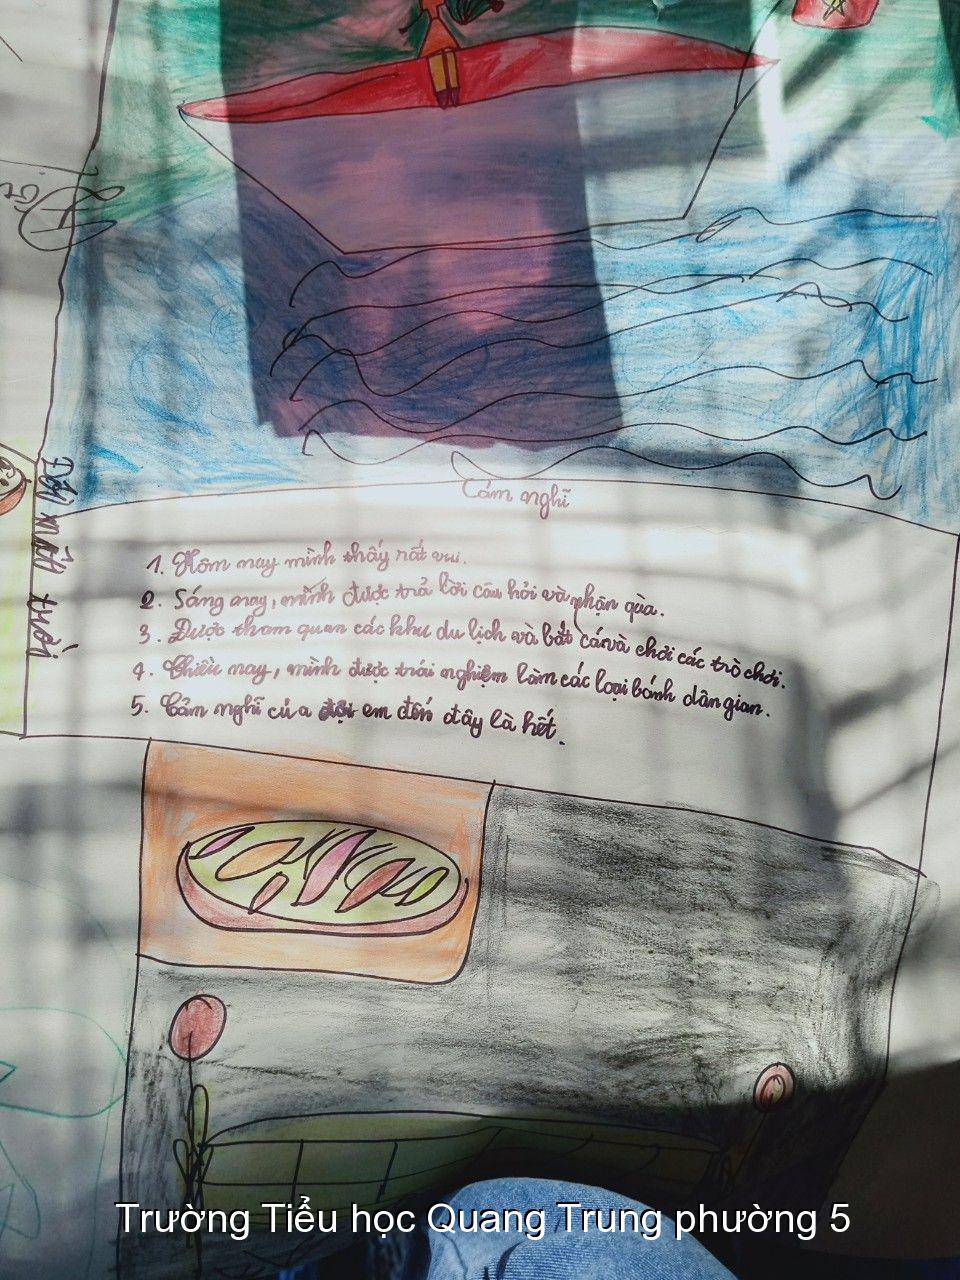 Cảm nghĩ
1. Hôm nay mình thấy rất vui.
2. Sáng nay, mình được trả lời câu hỏi và nhận quà.
3. Được tham quan các khu du lịch và bắt cá và chơi các trò chơi.
4. Chiều nay, mình được trải nghiệm làm các loại bánh dân gian.
5. Cảm nghĩ của đội em đến đây là hết.
Trường Tiểu học Quang Trung phường 5